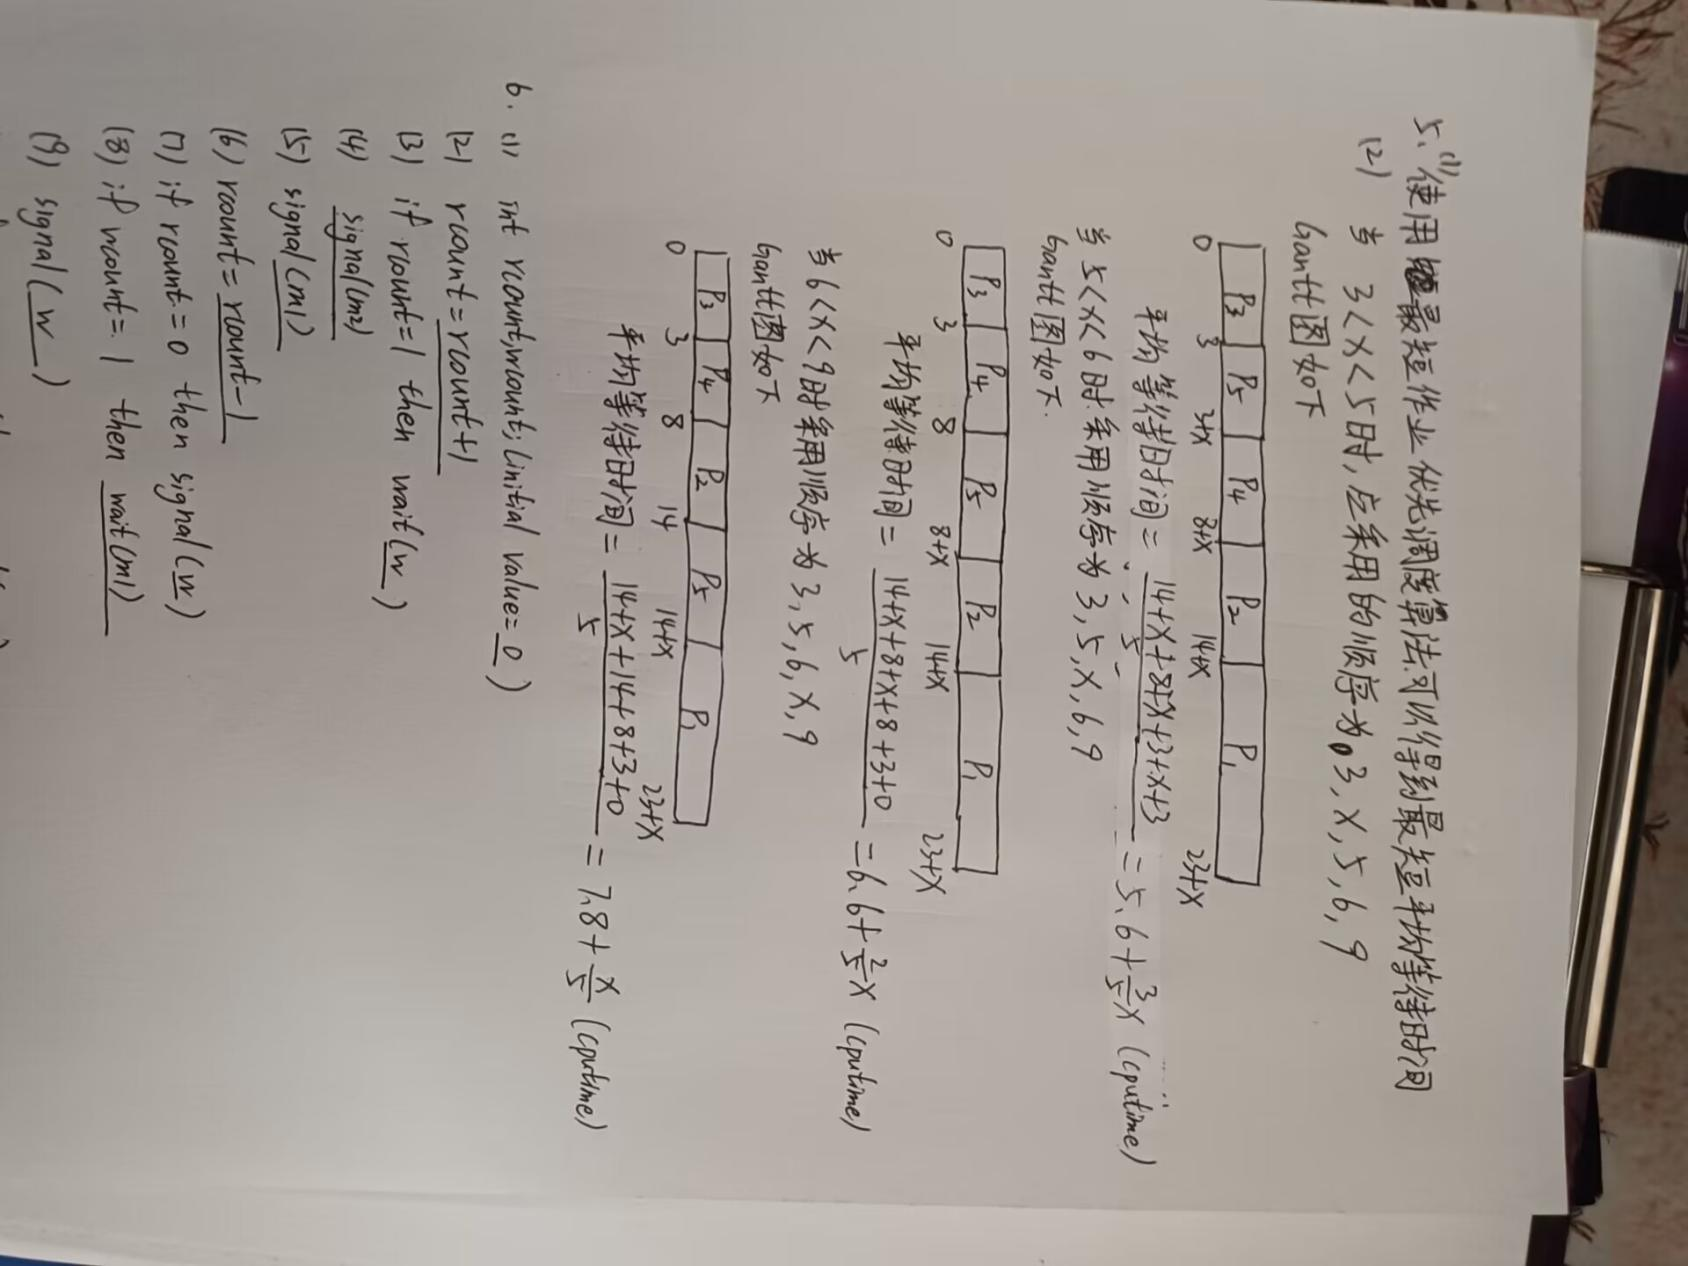 5.(1) 使用最短作业优先调度算法可以得到最短平均等待时间
(2) 当 3<X<5时,应采用的顺序为3,X,5,6,9
Gantt图如下
P3 P5 P4 P2 P1
0 3 3+X 8+X 14+X 23+X
平均等待时间= (14+X+8+X+3+X+3)/5 = 5.6+3/5X (cputime)
当5<X<6时.采用顺序为3,5,X,6,9
Gantt图如下.
P3 P4 P5 P2 P1
0 3 8 8+X 14+X 23+X
平均等待时间= (14+X+8+X+8+3+0)/5 =6.6+2/5X (cputime)
当6<X<9时采用顺序为3,5,6,X,9
Gantt图如下
P3 P4 P2 P5 P1
0 3 8 14 14+X 23+X
平均等待时间= (14+X+14+8+3+0)/5 = 7.8+X/5 (cputime)
6. (1) int rcount,wcount; (initial value=0)
(2) rcount=rcount+1
(3) if rcount=1 then wait(w)
(4) signal(m2)
(5) signal(m1)
(6) rcount=rcount-1
(7) if rcount=0 then signal(w)
(8) if wcount=1 then wait(m1)
(9) signal(w)